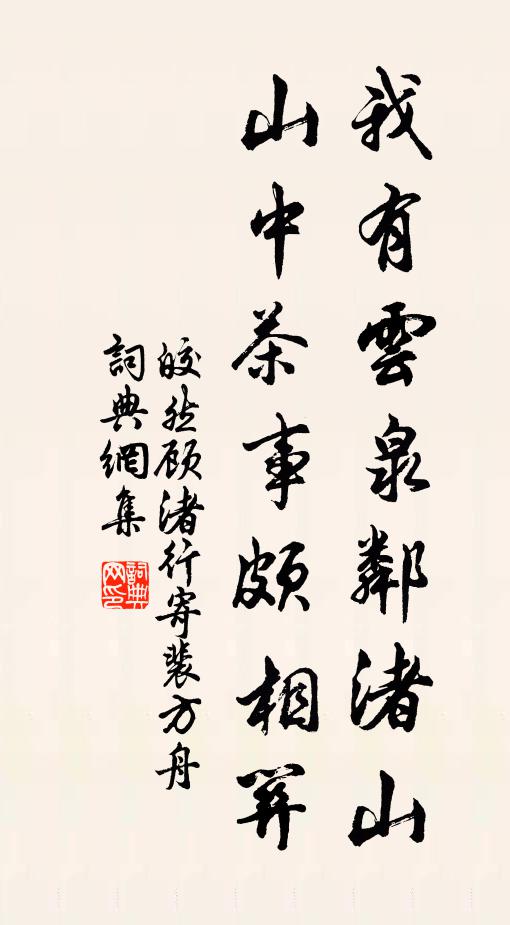 我有雲泉鄰渚山
山中茶事頗相關
皎然顧渚行寄裴方舟
詞典網集
詞典网印